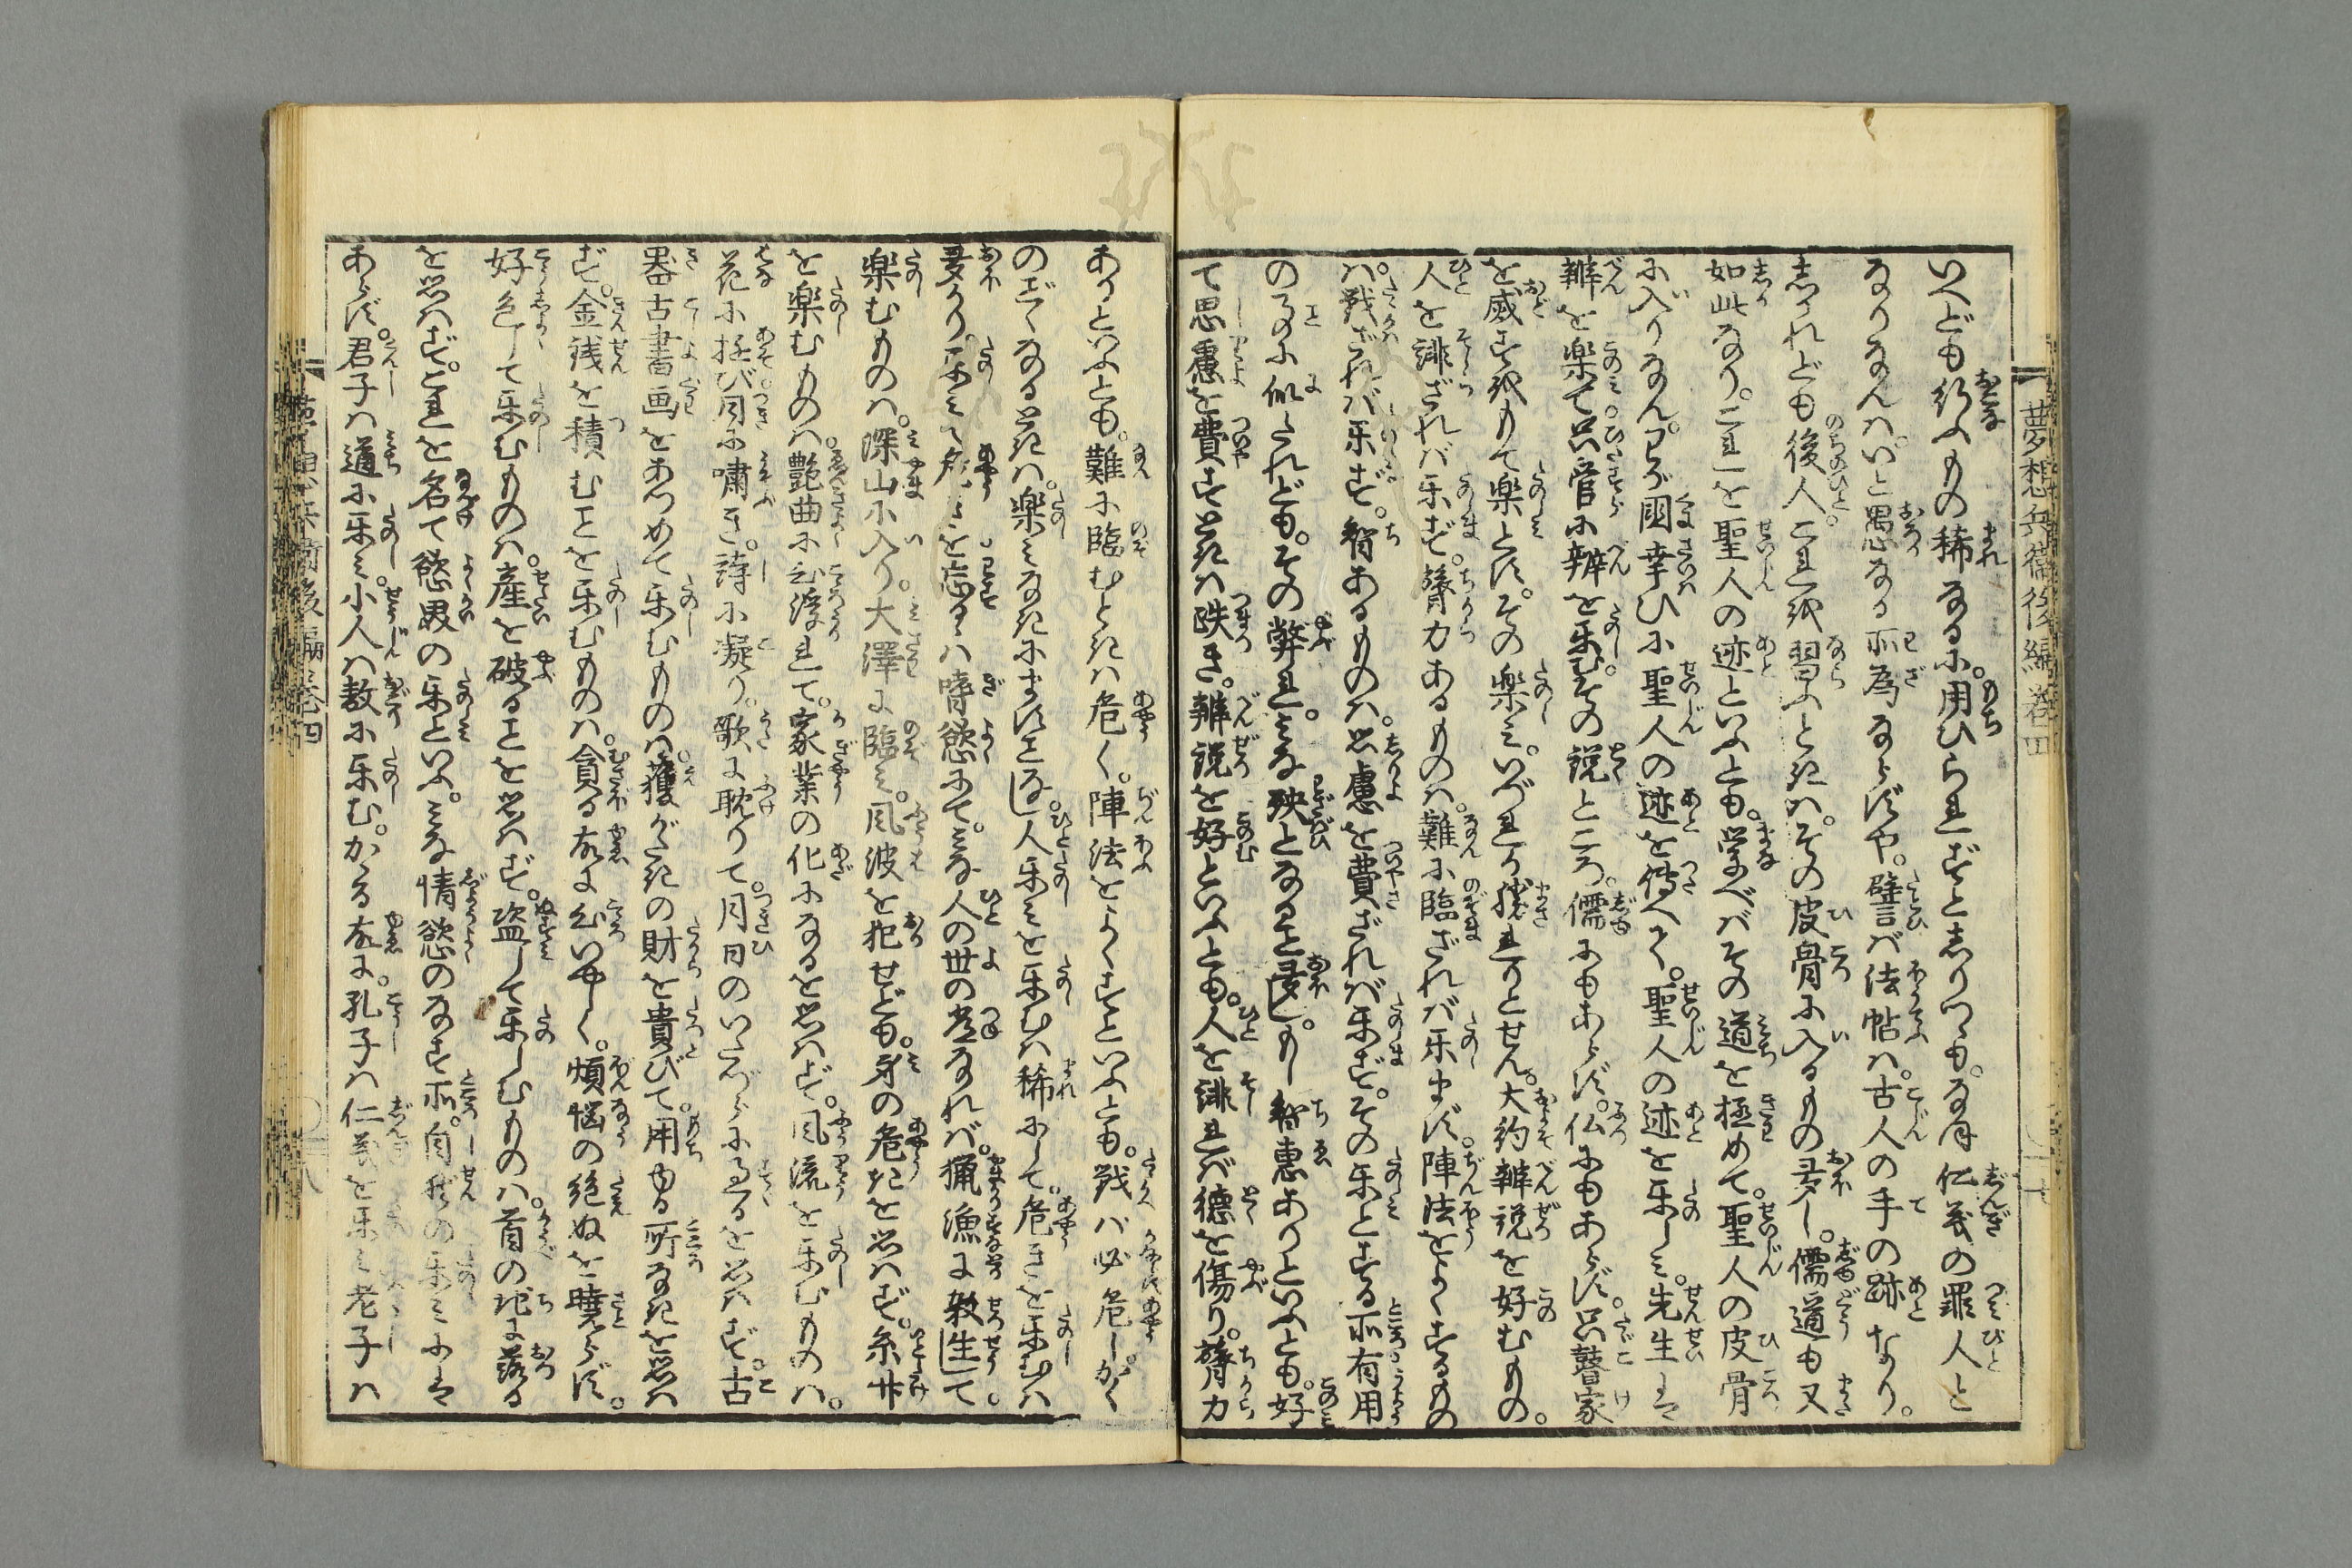 夢想兵衛後編巻四
いへども行ふもの稀なるに。用ひられずとしりつゝも。なほ仁義の罪人と
なりなんは。いと愚なる所為ならずや。譬言ば法帖は。古人の手の跡なり。
しかれども後人これを習ふときは。その皮骨に入るもの多し。儒道も又
如此なり。これを聖人の迹といふとも。学べばその道を極めて。聖人の皮骨
に入りなん。わが國幸ひに聖人の迹を傳へて。聖人の迹を楽しみ。先生は
辨を楽て只管に辨を楽む。その説ところ。儒にもあらず。仏にもあらず。只瞽家
を威すをもて楽とす。その楽み。いづれか勝れりとせん。大約辨説を好むもの。
人を誹ざれば楽ず。膂力あるものは。難に臨ざれば楽まず。陣法をよくするもの
は。戦ざれば楽ず。智あるものは。思慮を費ざれば楽ず。その楽とする所有用
のことに似たれども。その弊れ。みな殃となること多し。もし智恵ありといふとも。好
て思慮を費すときは跌き。辨説を好といふとも。人を誹れば徳を傷り。膂力
ありといふとも。難に臨むときは危く。陣法をよくすといふとも。戦へば必危し。かく
のごゝなるときは。楽みなきにますことなし。人楽みを楽むは稀にして。危きを楽むは
多かり。楽みて危きを忘るゝは嗜慾にて。みな人の世の常なれば。猟漁に殺生して
楽むものは。深山に入り。大澤に臨み。風波を犯せども。身の危きを思はず。糸竹
を楽むものは。艶曲に心浮れて。家業の化になるを思はず。風流を楽むものは。
花に遊び月に嘯き。詩に凝り。歌に耽りて。月日のいたづらにふるを思はず。古
器古書画をあつめて楽むものは。獲がたきの財を貴びて。用ゆる所なきを思は
ず。金銭を積むことを楽むものは。貪る故に心いやしく。煩悩の絶ぬを暁らず。
好色して楽むものは。産を破ることを思はず。盗して楽しむものは。首の地に落る
を思はず。これを名て慾界の楽といふ。みな情慾のなす所。自然の楽みには
あらず。君子は道に楽み。小人は教に楽む。かゝる故に。孔子は仁義を楽み老子は